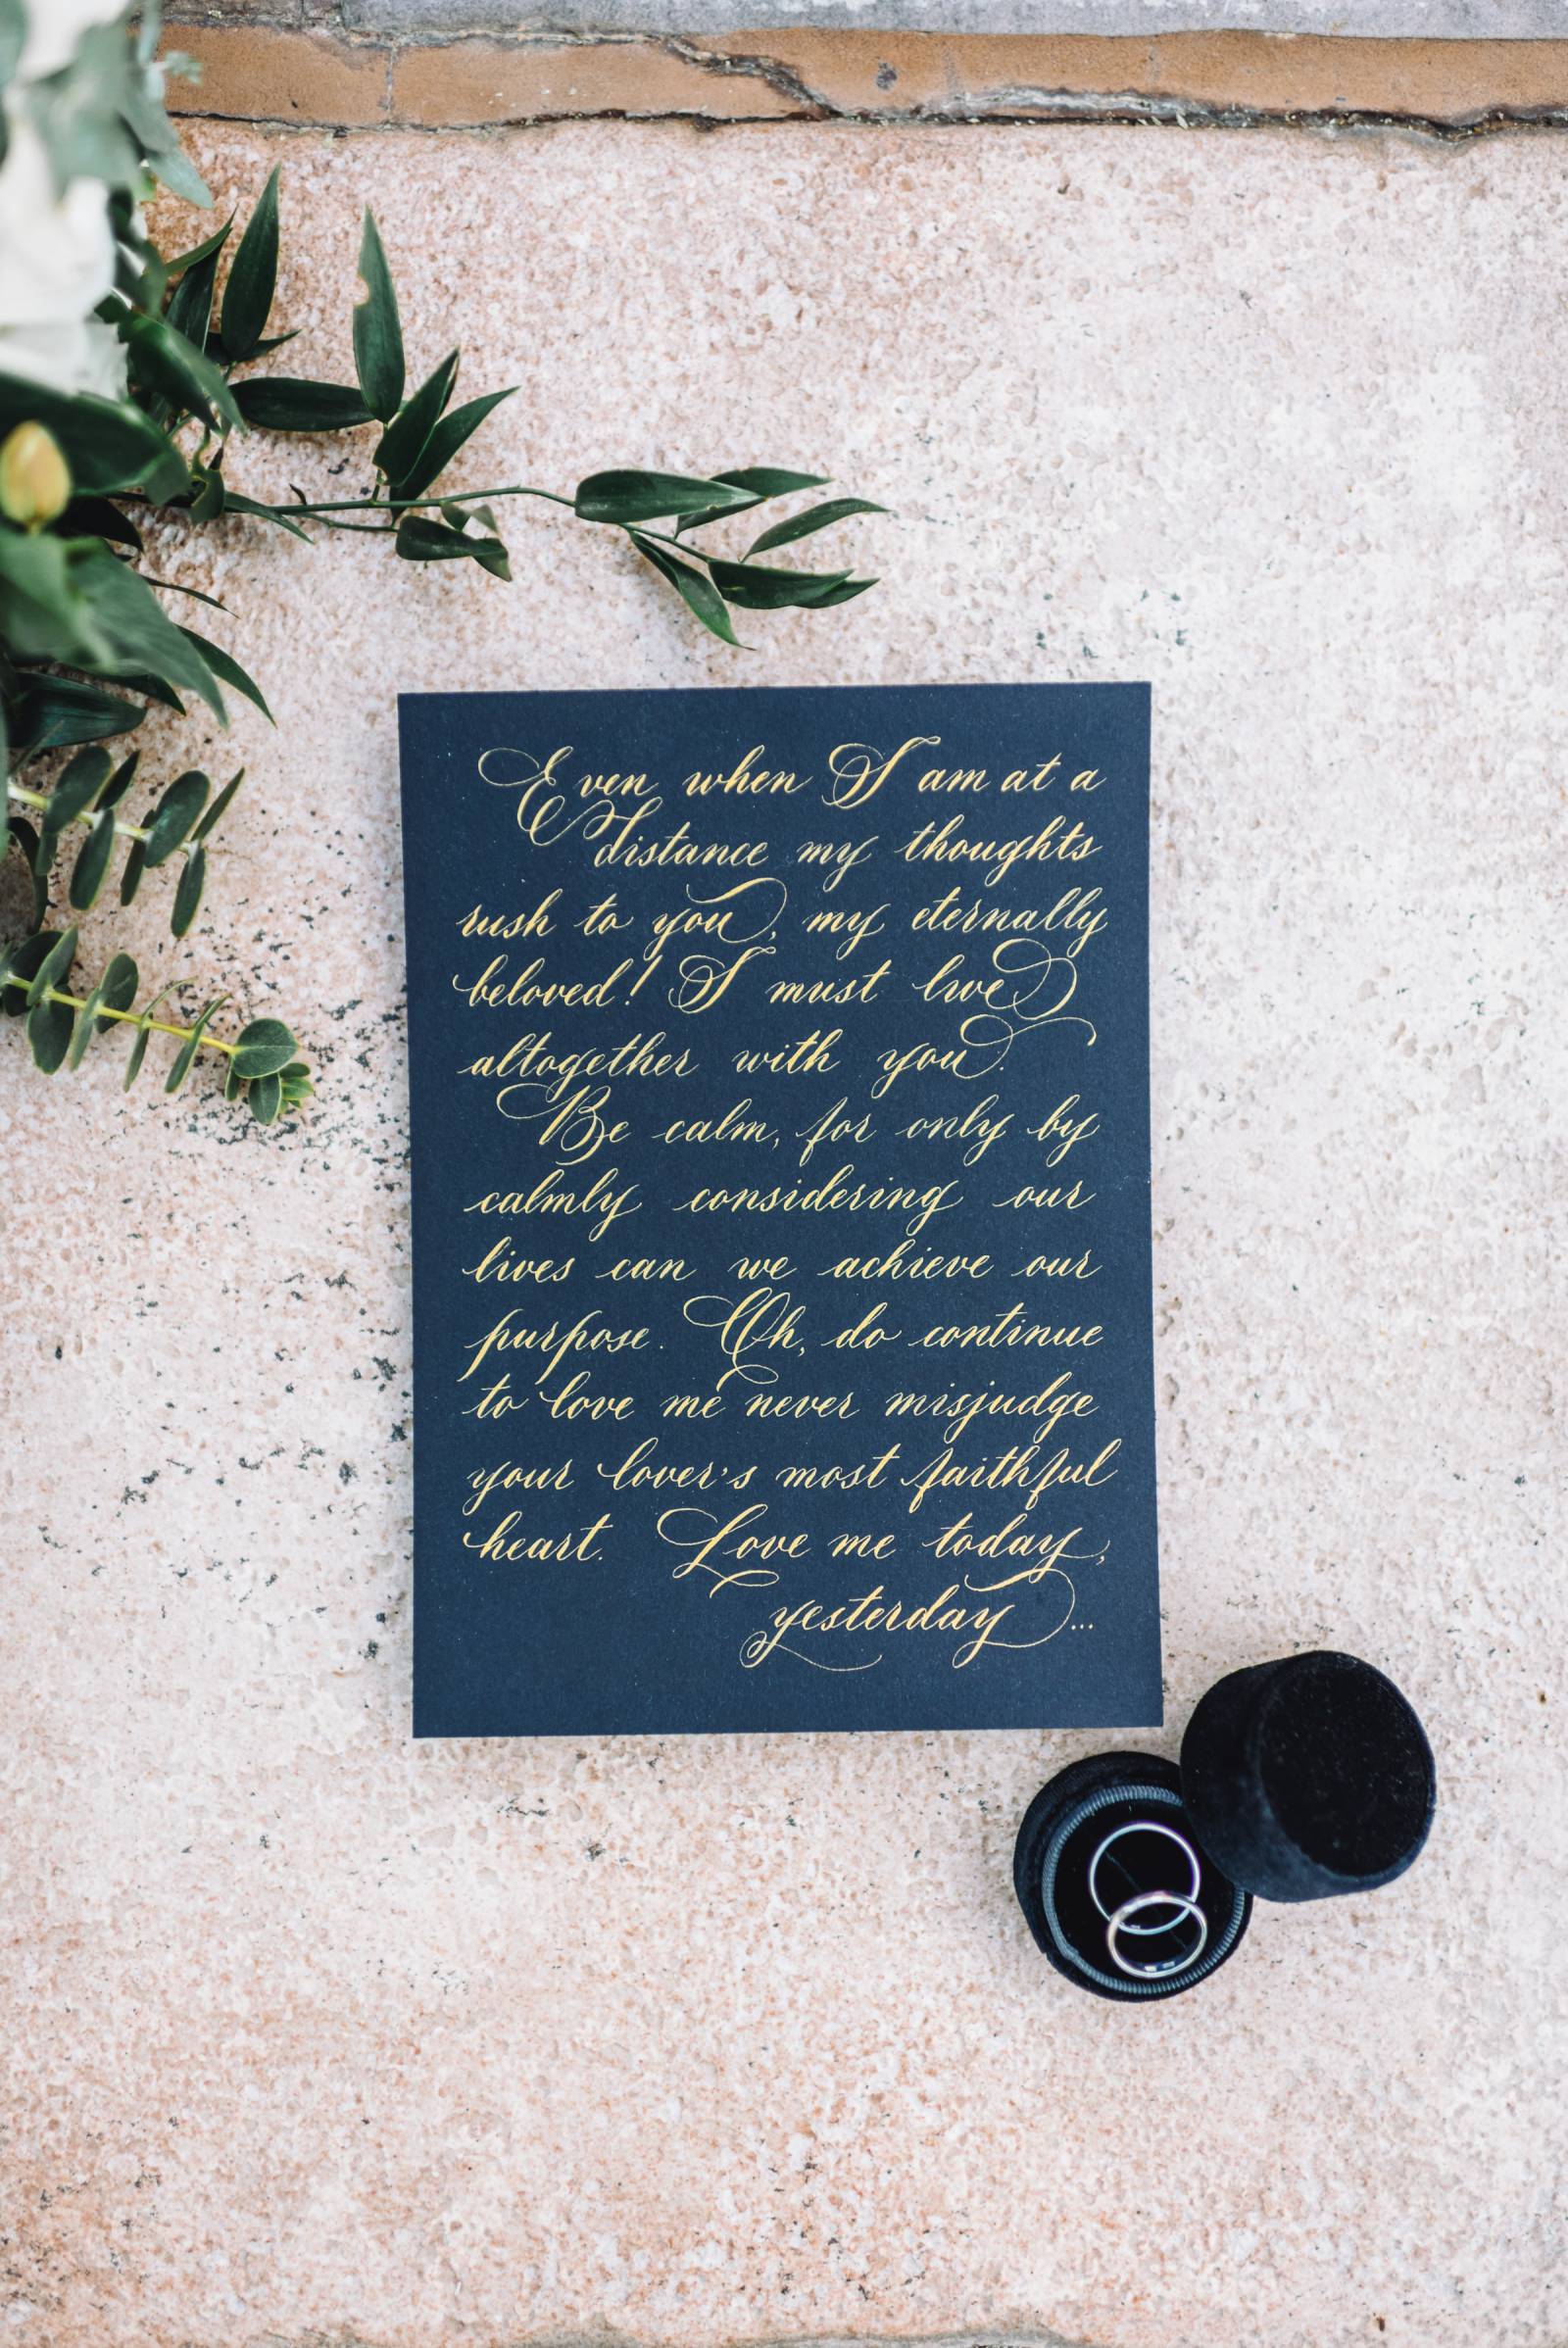 Even when I am at a
distance my thoughts
rush to you, my eternally
beloved! I must live
altogether with you.
Be calm, for only by
calmly considering our
lives can we achieve our
purpose. Oh, do continue
to love me never misjudge
your lover's most faithful
heart. Love me today,
yesterday...